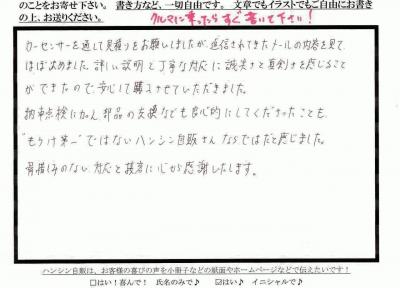 のことをお寄せ下さい。 書き方など、一切自由です。 文章でもイラストでもご自由にお書き
の上、お送りください。 クルマに乗ったらすぐ書いて下さい！
カーセンサーを通して見積りをお願いしましたが、返信されてきたメールの内容を見て、
ほぼ決めました。詳しい説明と丁寧な対応に誠実さと真剣さを感じること
ができたので、安心して購入させていただきました。
納車点検に加え、部品の交換なども良心的にしてくださったことも、
"もうけ第一"ではないハンシン自販さんならではだと感じました。
骨惜しみのない対応と接客に心から感謝いたします。
ハンシン自販は、お客様の喜びの声を小冊子などの紙面やホームページなどで伝えたいです！
□はい！喜んで！ 氏名のみで♪ ☑はい♪ イニシャルで♪